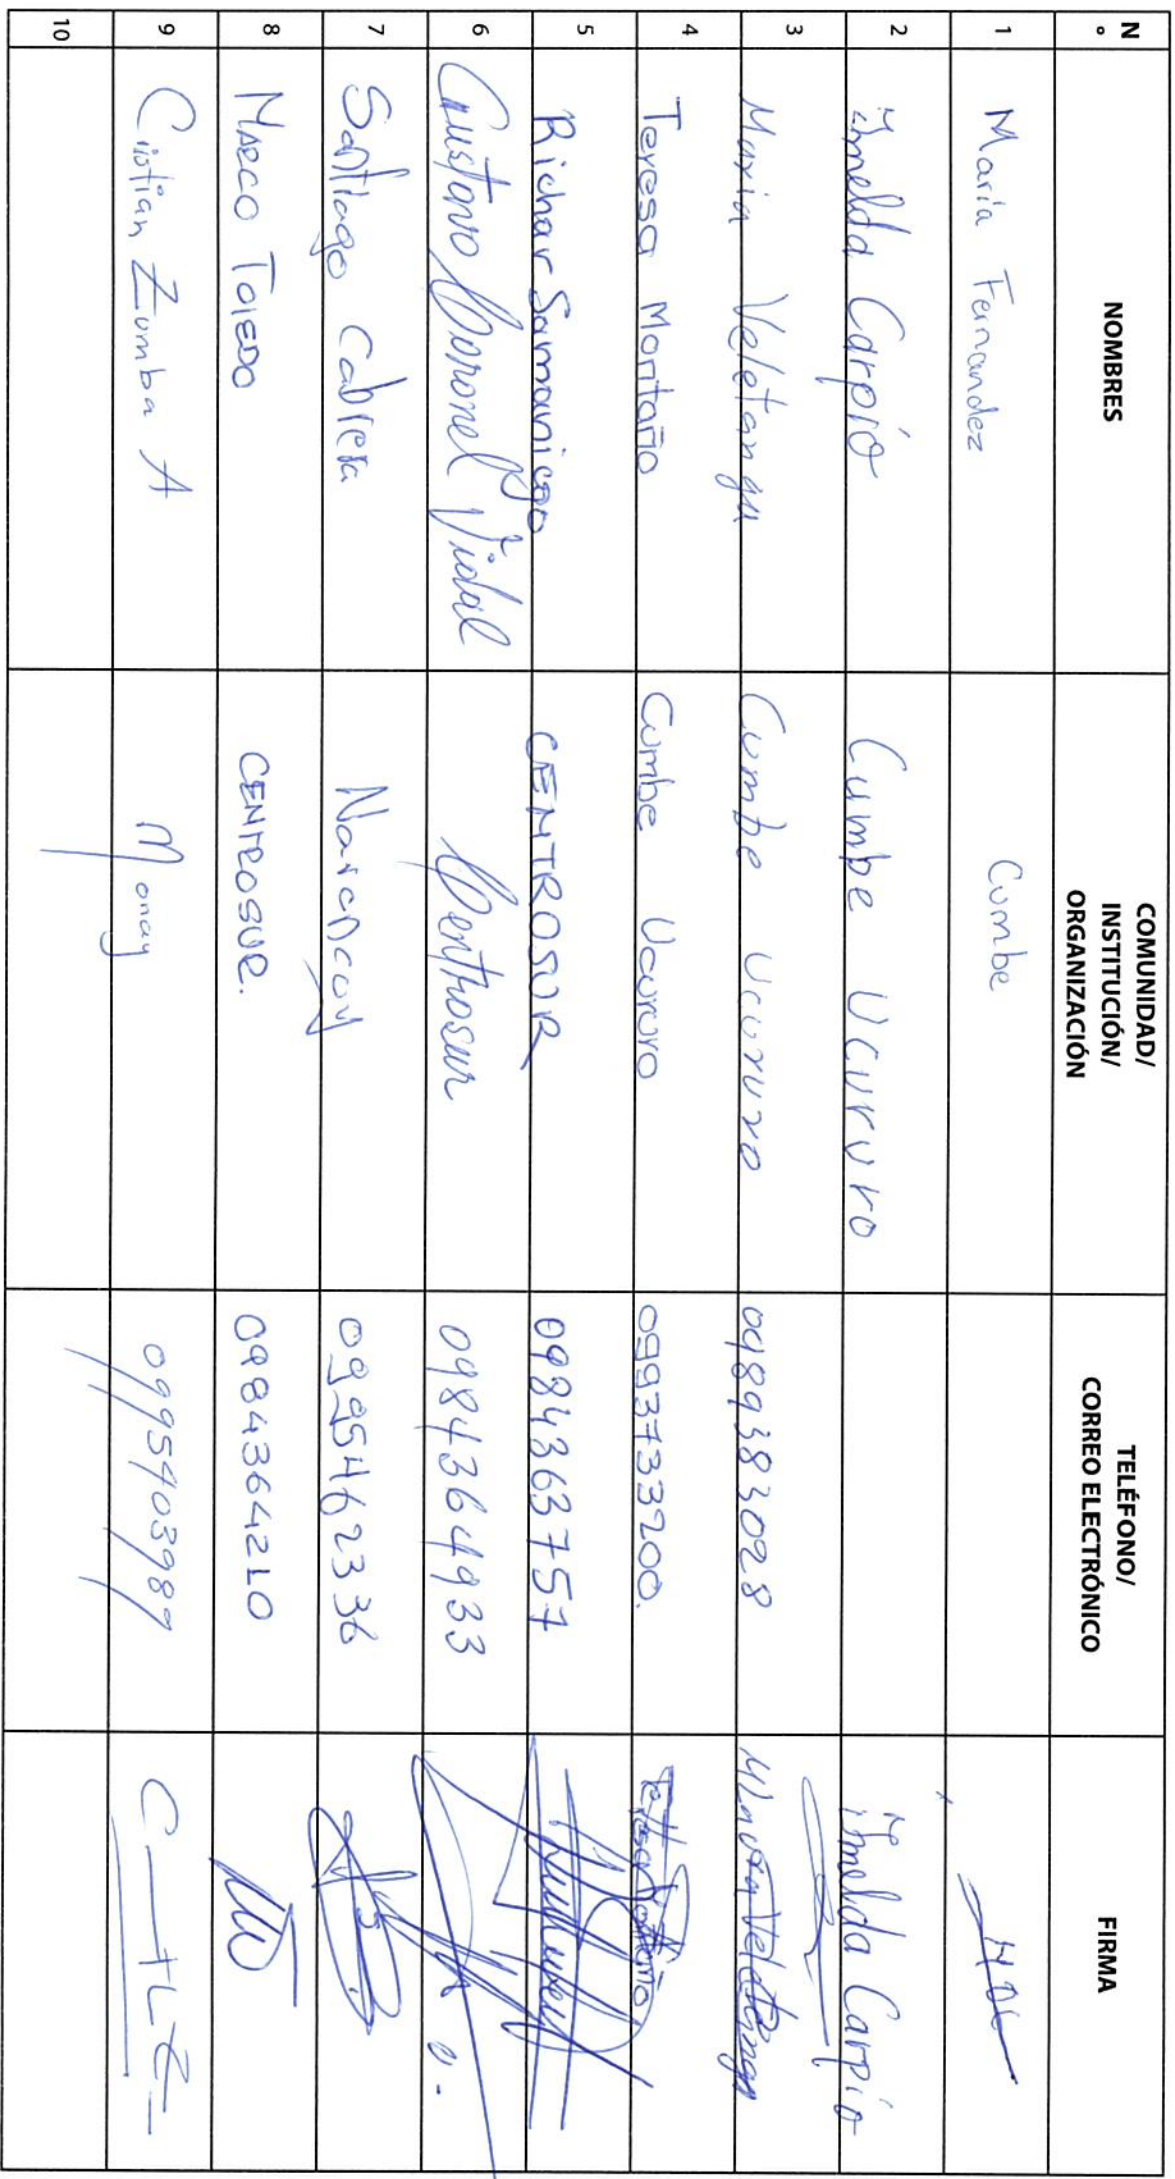 N° NOMBRES COMUNIDAD/ INSTITUCIÓN/ ORGANIZACIÓN TELÉFONO/ CORREO ELECTRÓNICO FIRMA
1 María Fernandez Cumbe
2 Imelda Carpió Cumbe Ucururo Imelda Carpió
3 Maria Veletanga Cumbe Ucururo 0989383028 Maria Veletanga
4 Teresa Montaño Cumbe Ucururo 0993733200. Teresa Montaño
5 Richar Samaniego CENTROSUR 0984363757
6 Gustavo Coronel Vidal Centrosur 0984364933
7 Santiago Cabrera Narancay 0995462336
8 MARCO TOLEDO CENTROSUR. 0984364210
9 Cristian Zumba A Monay 0995403989
10